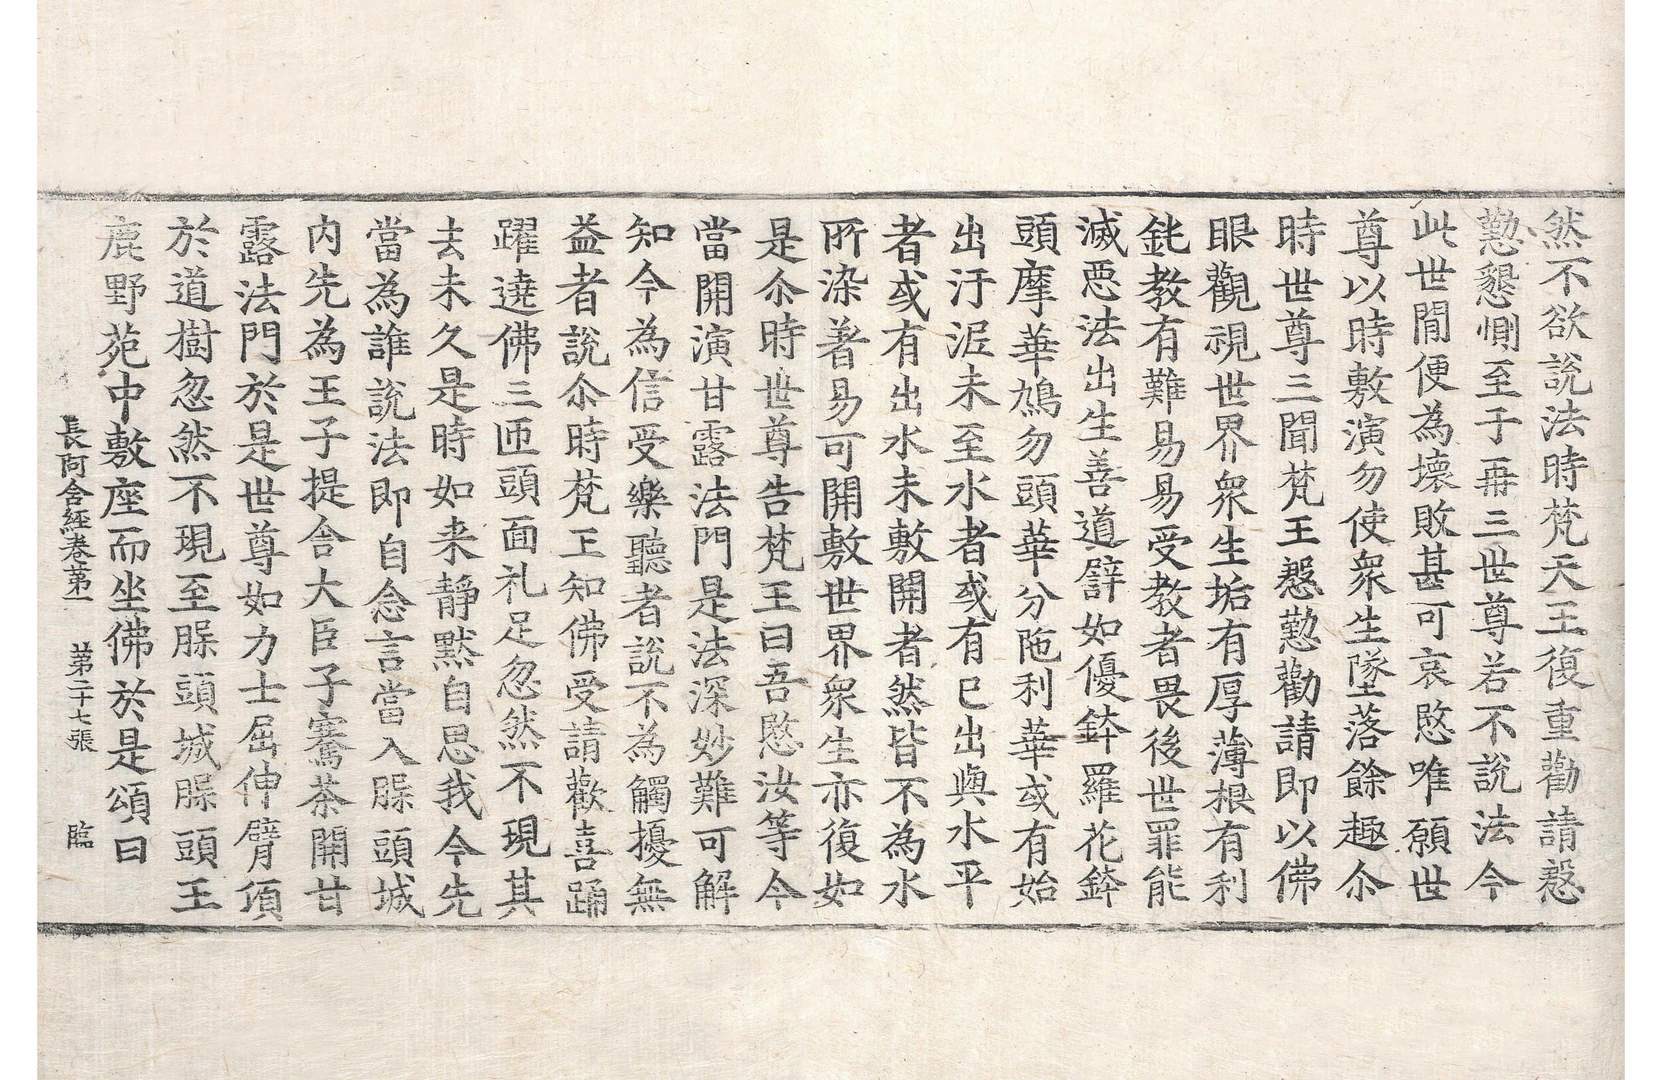 然不欲說法時梵天王復重勸請慇
懃懇惻至于再三世尊若不說法今
此世閒便為壞敗甚可哀愍唯願世
尊以時敷演勿使衆生墜落餘趣尒
時世尊三聞梵王慇懃勸請即以佛
眼觀視世界衆生垢有厚薄根有利
鈍教有難易易受教者畏後世罪能
滅惡法出生善道譬如優鉢羅花鉢
頭摩華鳩勿頭華分陁利華或有始
出汙泥未至水者或有已出與水平
者或有出水未敷開者然皆不為水
所染著易可開敷世界衆生亦復如
是尒時世尊告梵王曰吾愍汝等今
當開演甘露法門是法深妙難可解
知今為信受樂聽者說不為觸擾無
益者說尒時梵王知佛受請歡喜踊
躍遶佛三匝頭面礼足忽然不現其
去未久是時如来靜默自思我今先
當為誰說法即自念言當入䐗頭城
内先為王子提舍大臣子騫荼開甘
露法門於是世尊如力士屈伸臂頃
於道樹忽然不現至䐗頭城䐗頭王
鹿野苑中敷座而坐佛於是頌曰
長阿含經卷第一 第二十七張 臨